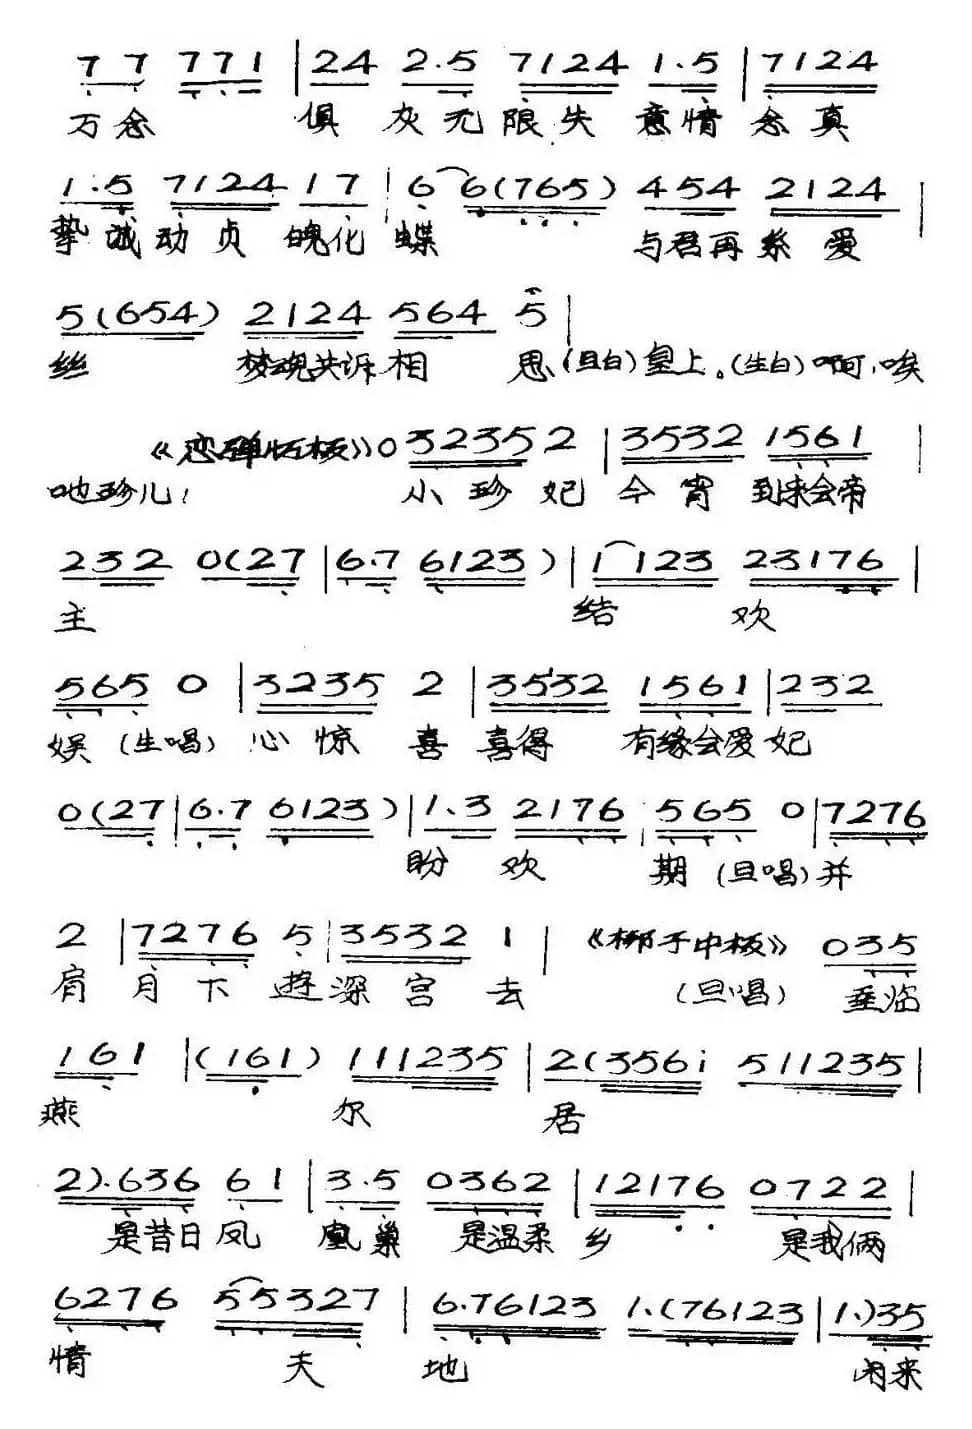 7 7 771 | 24 2.5 7124 1.5 | 7124
万念 俱 灰无限失 意情念真
1.5 7124 17 | 6 6(765) 454 2124 |
挚诚动贞 魄化 蝶 与君再系爱
5(654) 2124 564 5 |
丝 梦魂共诉相 思、(旦白)皇上。(生白)啊,唉
《恋弹怀板》0 32352 | 3532 1561 |
吔珍儿! 小珍妃 今宵 到来会帝
232 0(27 | 6.7 6123) | 1 123 23176 |
主 结 欢
565 0 | 3235 2 | 3532 1561 | 232
娱 (生唱) 心惊 喜 喜得 有缘会爱妃
0(27 | 6.7 6123) | 1.3 2176 | 565 0 | 7276
盼 欢 期 (旦唱)并
2 | 7276 5 | 3532 1 | 《梆子中板》 035
肩 月下 逰深宫 去 (旦唱) 垂临
161 | (161) 111235 | 2(356i 511235 |
燕 尔 居
2).636 61 | 3.5 0362 | 12176 0722 |
是昔日凤 凰巢 是温柔乡 是我俩
6276 55327 | 6.76123 1.(76123 | 1.)35
情 天 地 闲来